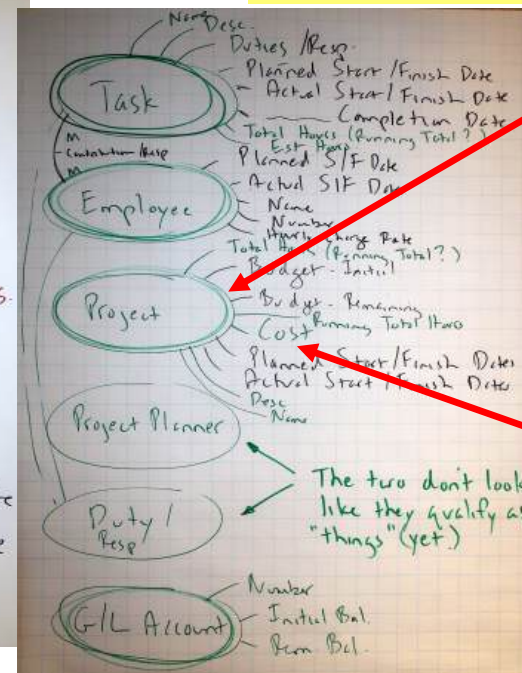 Name
Desc.
Duties /Resp.
Planned Start/Finish Date
Task
Actual Start/Finish Date
Completion Date
Total Hours (Running Total?)
Est Hours
M
Contribution/Resp
M
Planned S/F Date
Actual S/F Date
Employee
Name
Number
Hourly Charge Rate
Total Hours (Running Total?)
Budget - Initial
s.
Project
Budget - Remaining
Running Total Hours
Cost
Planned Start/Finish Dates
Actual Start/Finish Dates
Desc
Name
Project Planner
The two don't look
like they qualify as
"things" (yet.)
Duty /
Resp
Number
G/L Account
Initial Bal.
Rem Bal.